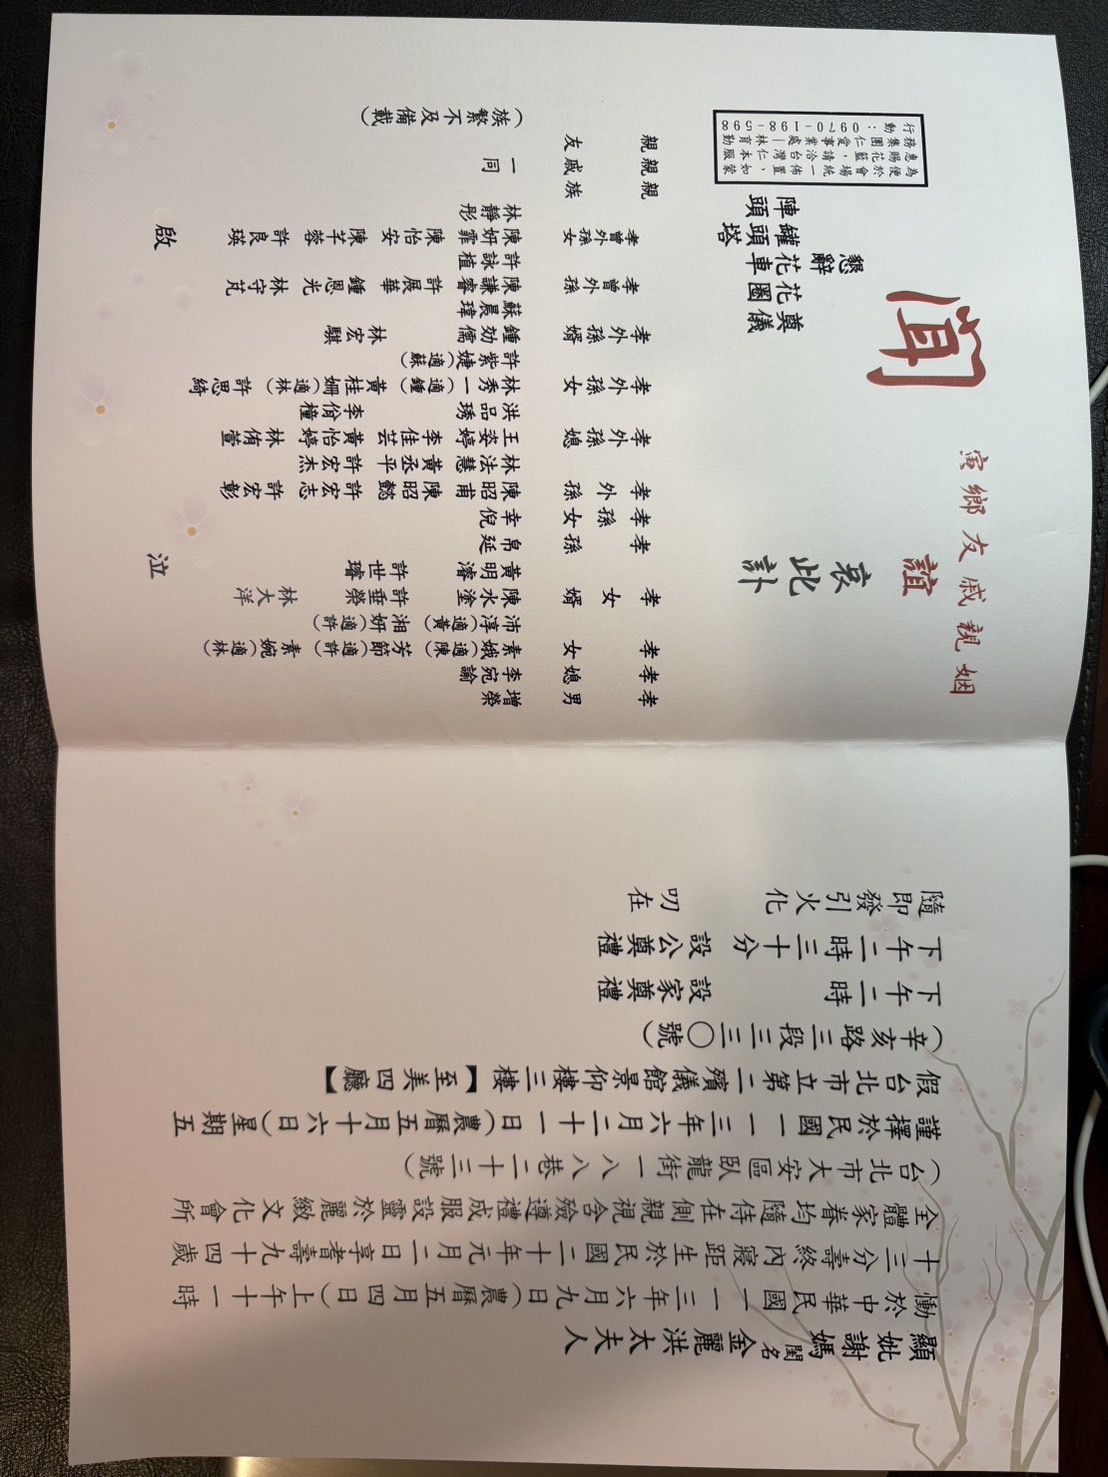 顯妣謝媽閨名金麗洪太夫人
慟於中華民國一一三年六月九日(農曆五月四日)上午十一時
十三分壽終內寢距生於民國二十年元月二日享耆壽九十四歲
全體家眷均隨侍在側親視含殮遵禮成服設靈於麗緻文化會所
(台北市大安區臥龍街一八八巷二十三號)
謹擇於民國一一三年六月二十一日(農曆五月十六日)星期五
假台北市立第二殯儀館景仰樓三樓【至美四廳】
(辛亥路三段三三〇號)
下午二時 設家奠禮
下午二時三十分 設公奠禮
隨即發引火化 叨在
姻親戚友鄉寅
誼
哀此訃
聞
懇辭
奠儀
花圈
花車
罐頭塔
陣頭
為便於會場統一佈置，如蒙
惠賜花籃，請洽台灣仁本服
務集團仁愛事業處－林育勤
行動：0970-198-568
孝男 增榮
孝媳 李宛諭
孝女 素娥(適陳) 芳節(適許) 素婉(適林)
沛淳(適黃) 湘妍(適許)
孝女婿 陳水塗 許垂榮 林大洋
黃明濬 許世璿
孝孫 帛延
孝孫女 幸倪
孝外孫 陳昭甫 陳昭懿 許宏志 許宏彰
林法慧 黃丞平 許宏杰
孝外孫媳 王姿婷 李佳芸 黃怡婷 林侑萱
洪品琇 李佾橦
孝外孫女 林秀一(適鍾) 黃桂姍(適林) 許思綺
許紫婕(適蘇)
孝外孫婿 鍾劾儒 林宏騏
蘇晨瑋
孝曾外孫 陳謙睿 許展華 鍾恩光 林守芃
許詠植
孝曾外孫女 陳妍霏 陳怡安 陳芊蓉 許良瑛
林靜彤
親族
親戚 一同
親友
(族繁不及備載)
泣啟